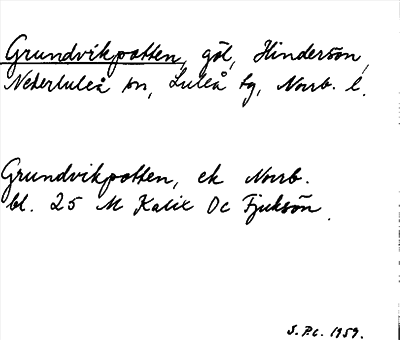 Grundvikpotten, göl, Hindersön,
Nederluleå sn, Luleå tg, Norrb. l.
Grundvikpotten, ek Norrb.
bl. 25 M Kalix Oc Fjuksön.
S.P.C. 1959.